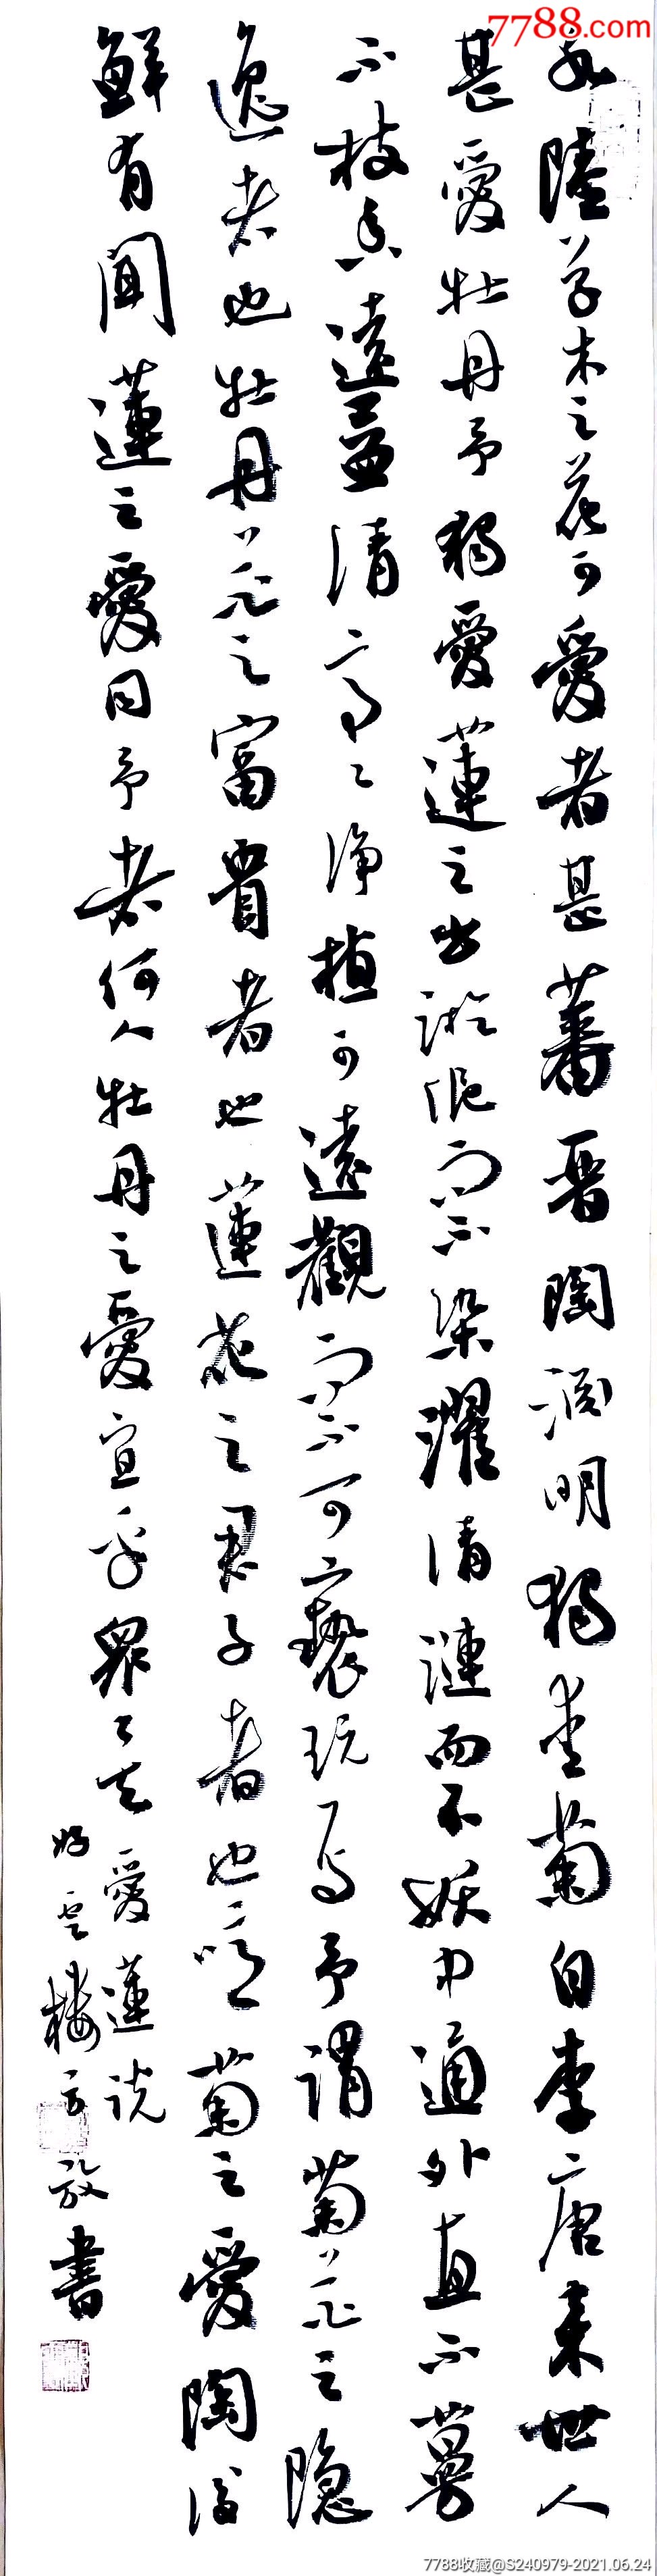 7788.com
水陸草木之花可愛者甚蕃晋陶渊明獨愛菊自李唐来世人
甚愛牡丹予獨愛蓮之出淤泥而不染濯清漣而不妖中通外直不蔓
不枝香遠益清亭々净植可遠觀而不可褻玩焉予謂菊花之隐
逸者也牡丹花之富貴者也蓮花之君子者也噫菊之愛陶後
鮮有聞蓮之愛同予者何人牡丹之愛宜乎衆矣 愛蓮説
樓放書
7788收藏@S240979-2021.06.24